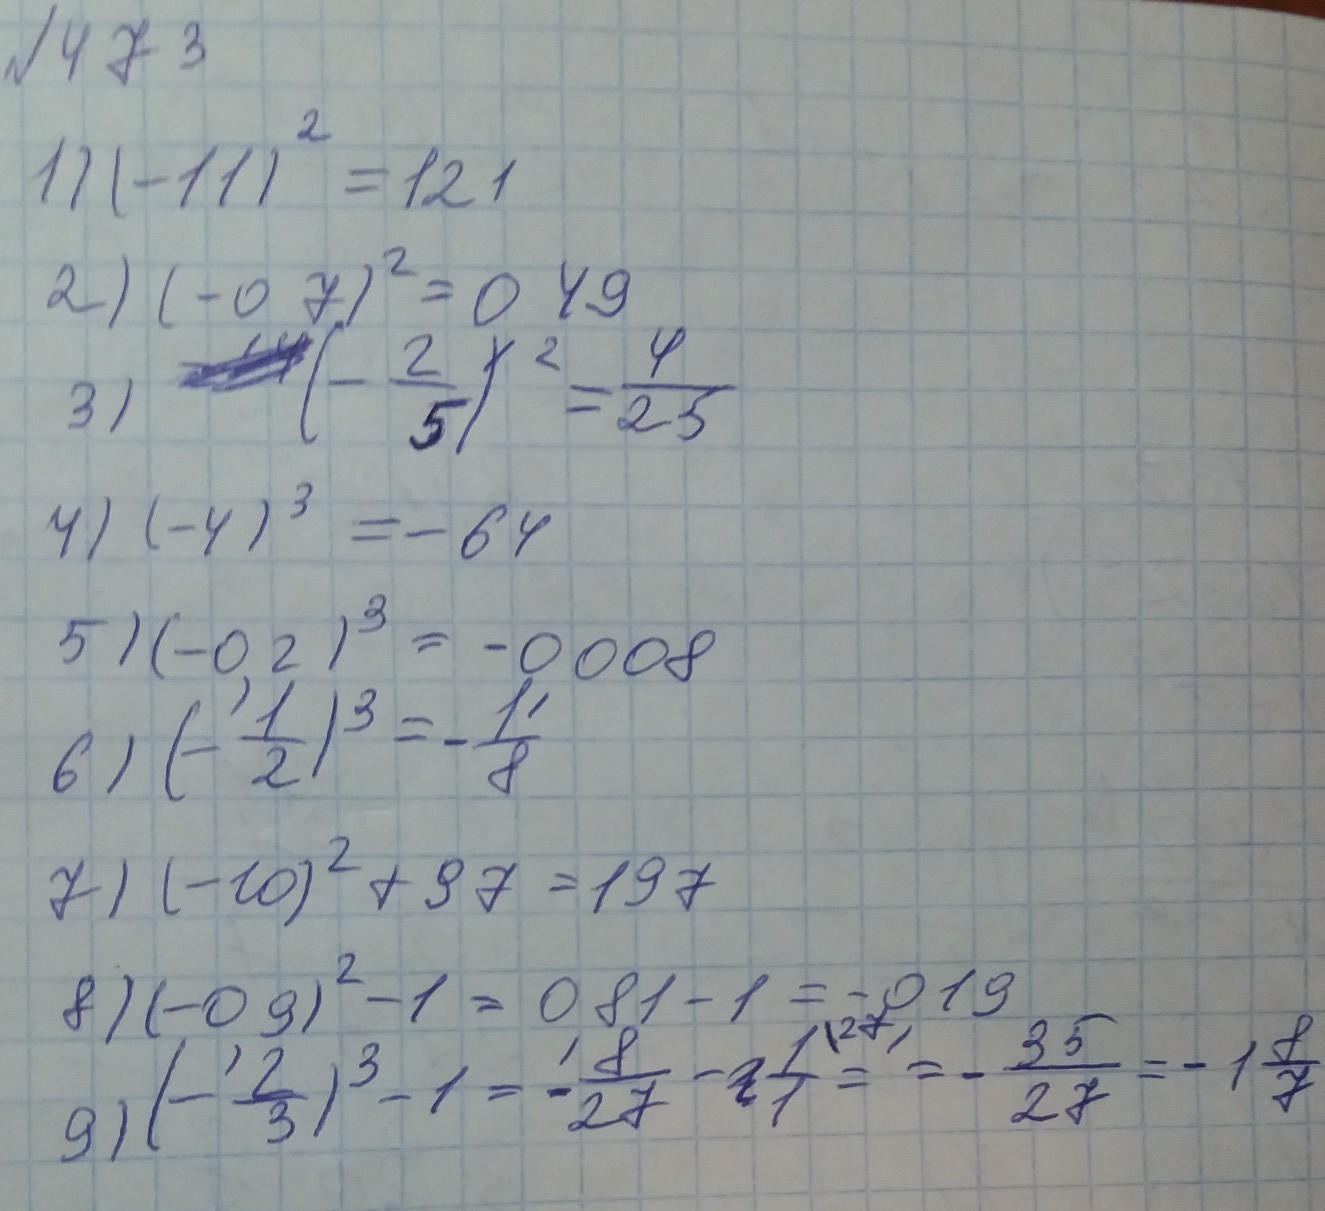 №473
1) (-11)² = 121
2) (-0 7)² = 0 49
3) (-2/5)² = 4/25
4) (-4)³ = -64
5) (-0,2)³ = -0,008
6) (-1/2)³ = -1/8
7) (-10)² + 97 = 197
8) (-0,9)² - 1 = 0,81 - 1 = -0,19
9) (-2/3)³ - 1 = -8/27 - 1/1 \27 = = -35/27 = -1 8/7